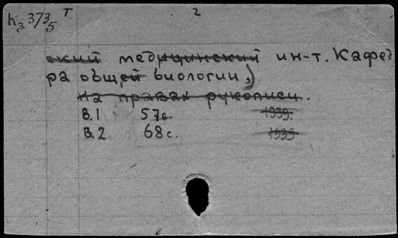 К3 3735 Т 2
ский медицинский ин-т. Кафед
ра общей биологии,)
На правах рукописи.
В.1 57с. 1939.
В.2 68с. 1939